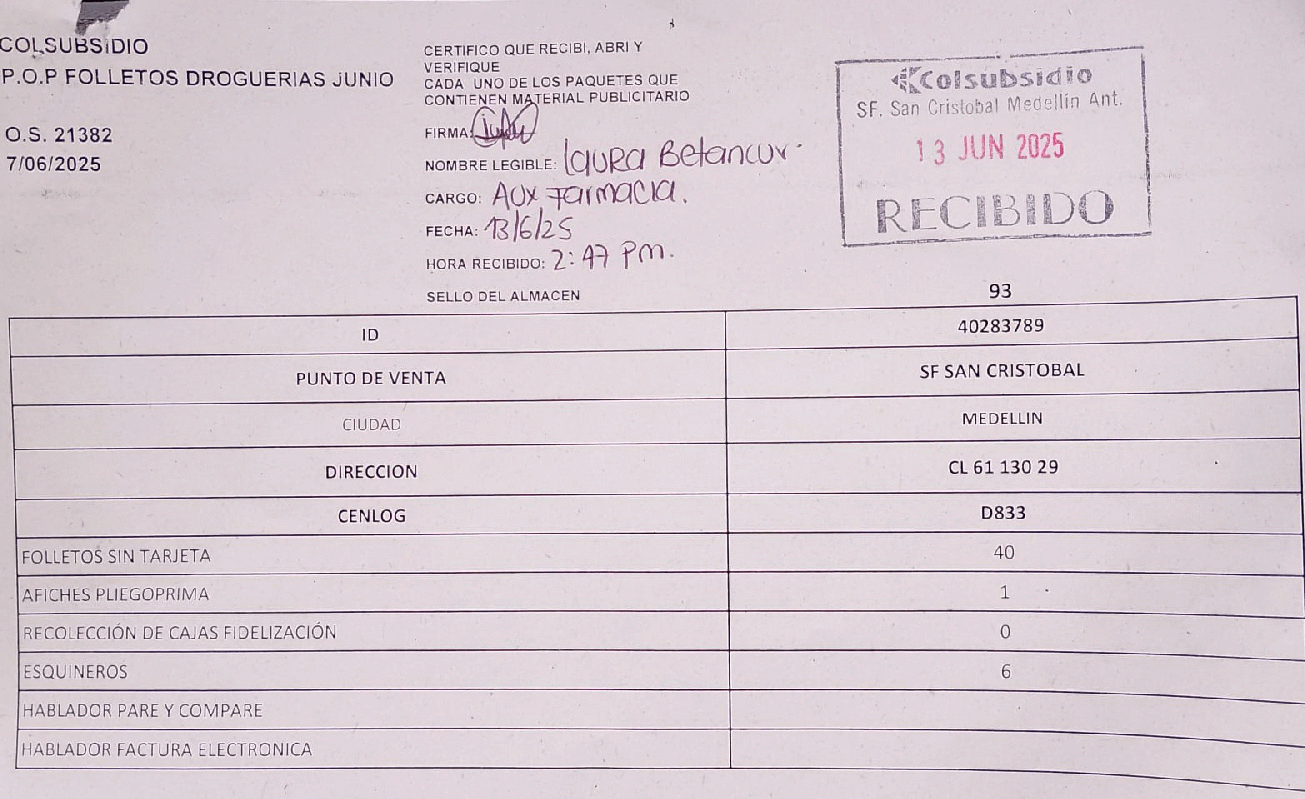 COLSUBSIDIO
P.O.P FOLLETOS DROGUERIAS JUNIO
O.S. 21382
7/06/2025
CERTIFICO QUE RECIBI, ABRI Y
VERIFIQUE
CADA UNO DE LOS PAQUETES QUE
CONTIENEN MATERIAL PUBLICITARIO
FIRMA:
NOMBRE LEGIBLE: Laura Betancur.
CARGO: Aux Farmacia.
FECHA: 13/6/25
HORA RECIBIDO: 2:47 Pm.
SELLO DEL ALMACEN
Colsubsidio
SF. San Cristobal Medellin Ant.
13 JUN 2025
RECIBIDO
93
ID 40283789
PUNTO DE VENTA SF SAN CRISTOBAL
CIUDAD MEDELLIN
DIRECCION CL 61 130 29
CENLOG D833
FOLLETOS SIN TARJETA 40
AFICHES PLIEGOPRIMA 1
RECOLECCIÓN DE CAJAS FIDELIZACIÓN 0
ESQUINEROS 6
HABLADOR PARE Y COMPARE
HABLADOR FACTURA ELECTRONICA